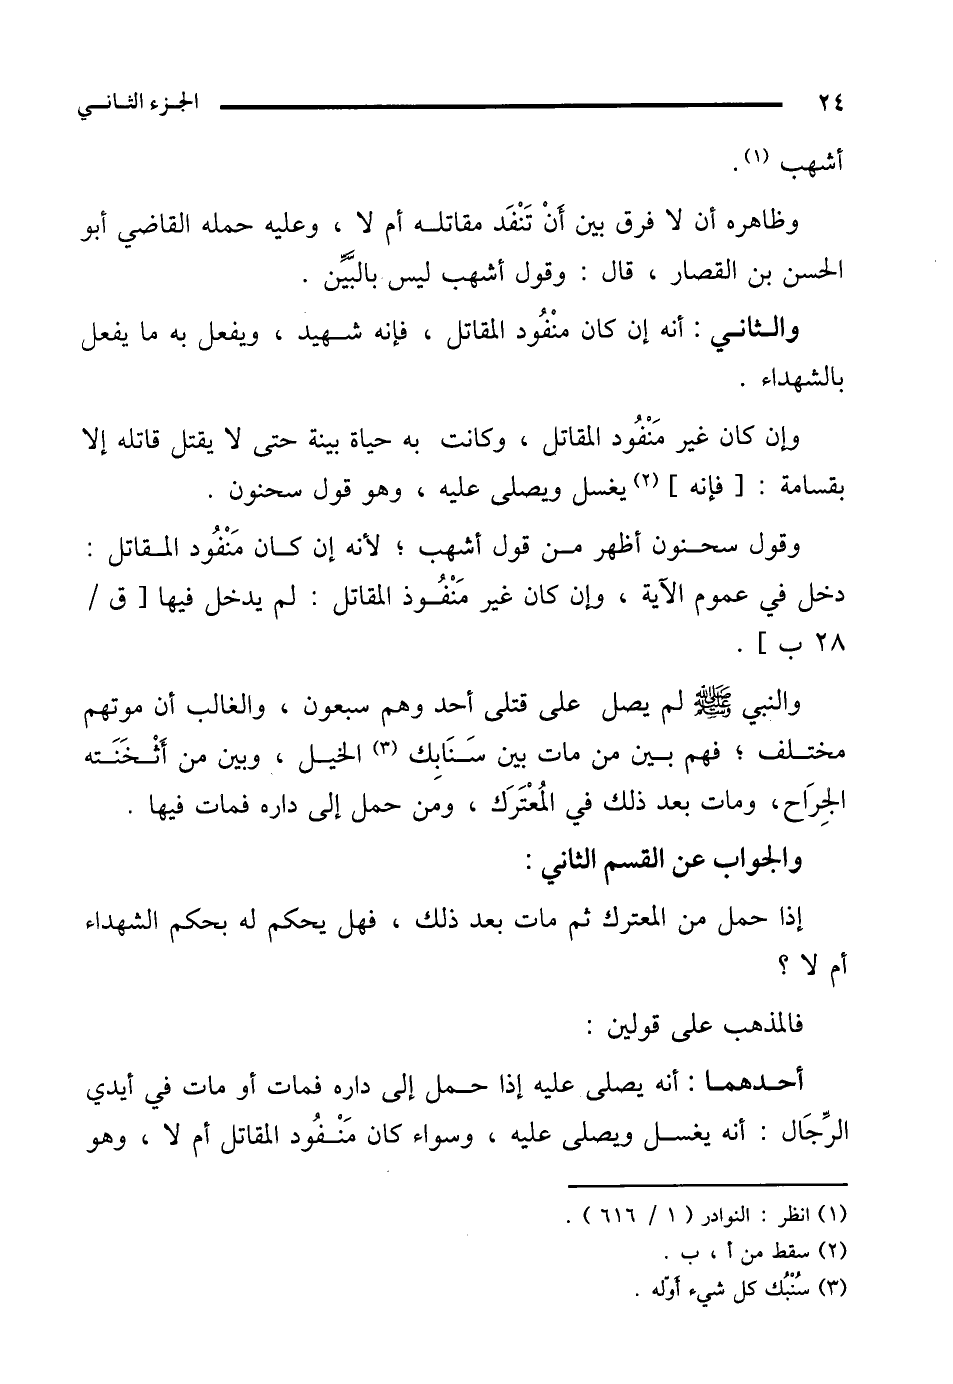 ٢٤ الجزء الثاني
أشهب (١) .
وظاهره أن لا فرق بين أَنْ تَنْفَد مقاتله أم لا ، وعليه حمله القاضي أبو
الحسن بن القصار ، قال : وقول أشهب ليس بالبيِّن .
والثاني : أنه إن كان منْفُود المقاتل ، فإنه شهيد ، ويفعل به ما يفعل
بالشهداء .
وإن كان غير مَنْفُود المقاتل ، وكانت به حياة بينة حتى لا يقتل قاتله إلا
بقسامة : [ فإنه ] (٢) يغسل ويصلى عليه ، وهو قول سحنون .
وقول سحنون أظهر من قول أشهب ؛ لأنه إن كان مَنْفُود المقاتل :
دخل في عموم الآية ، وإن كان غير مَنْفُوذ المقاتل : لم يدخل فيها [ ق /
٢٨ ب ] .
والنبي ﷺ لم يصل على قتلى أحد وهم سبعون ، والغالب أن موتهم
مختلف ؛ فهم بين من مات بين سَنَابِك (٣) الخيل ، وبين من أَثْخَنَته
الجِرَاح، ومات بعد ذلك في المُعْتَرَك ، ومن حمل إلى داره فمات فيها .
والجواب عن القسم الثاني :
إذا حمل من المعترك ثم مات بعد ذلك ، فهل يحكم له بحكم الشهداء
أم لا ؟
فالمذهب على قولين :
أحدهما : أنه يصلى عليه إذا حمل إلى داره فمات أو مات في أيدي
الرِّجَال : أنه يغسل ويصلى عليه ، وسواء كان مَنْفُود المقاتل أم لا ، وهو
(١) انظر : النوادر ( ١ / ٦١٦ ) .
(٢) سقط من أ ، ب .
(٣) سُنْبُك كل شيء أوّله .